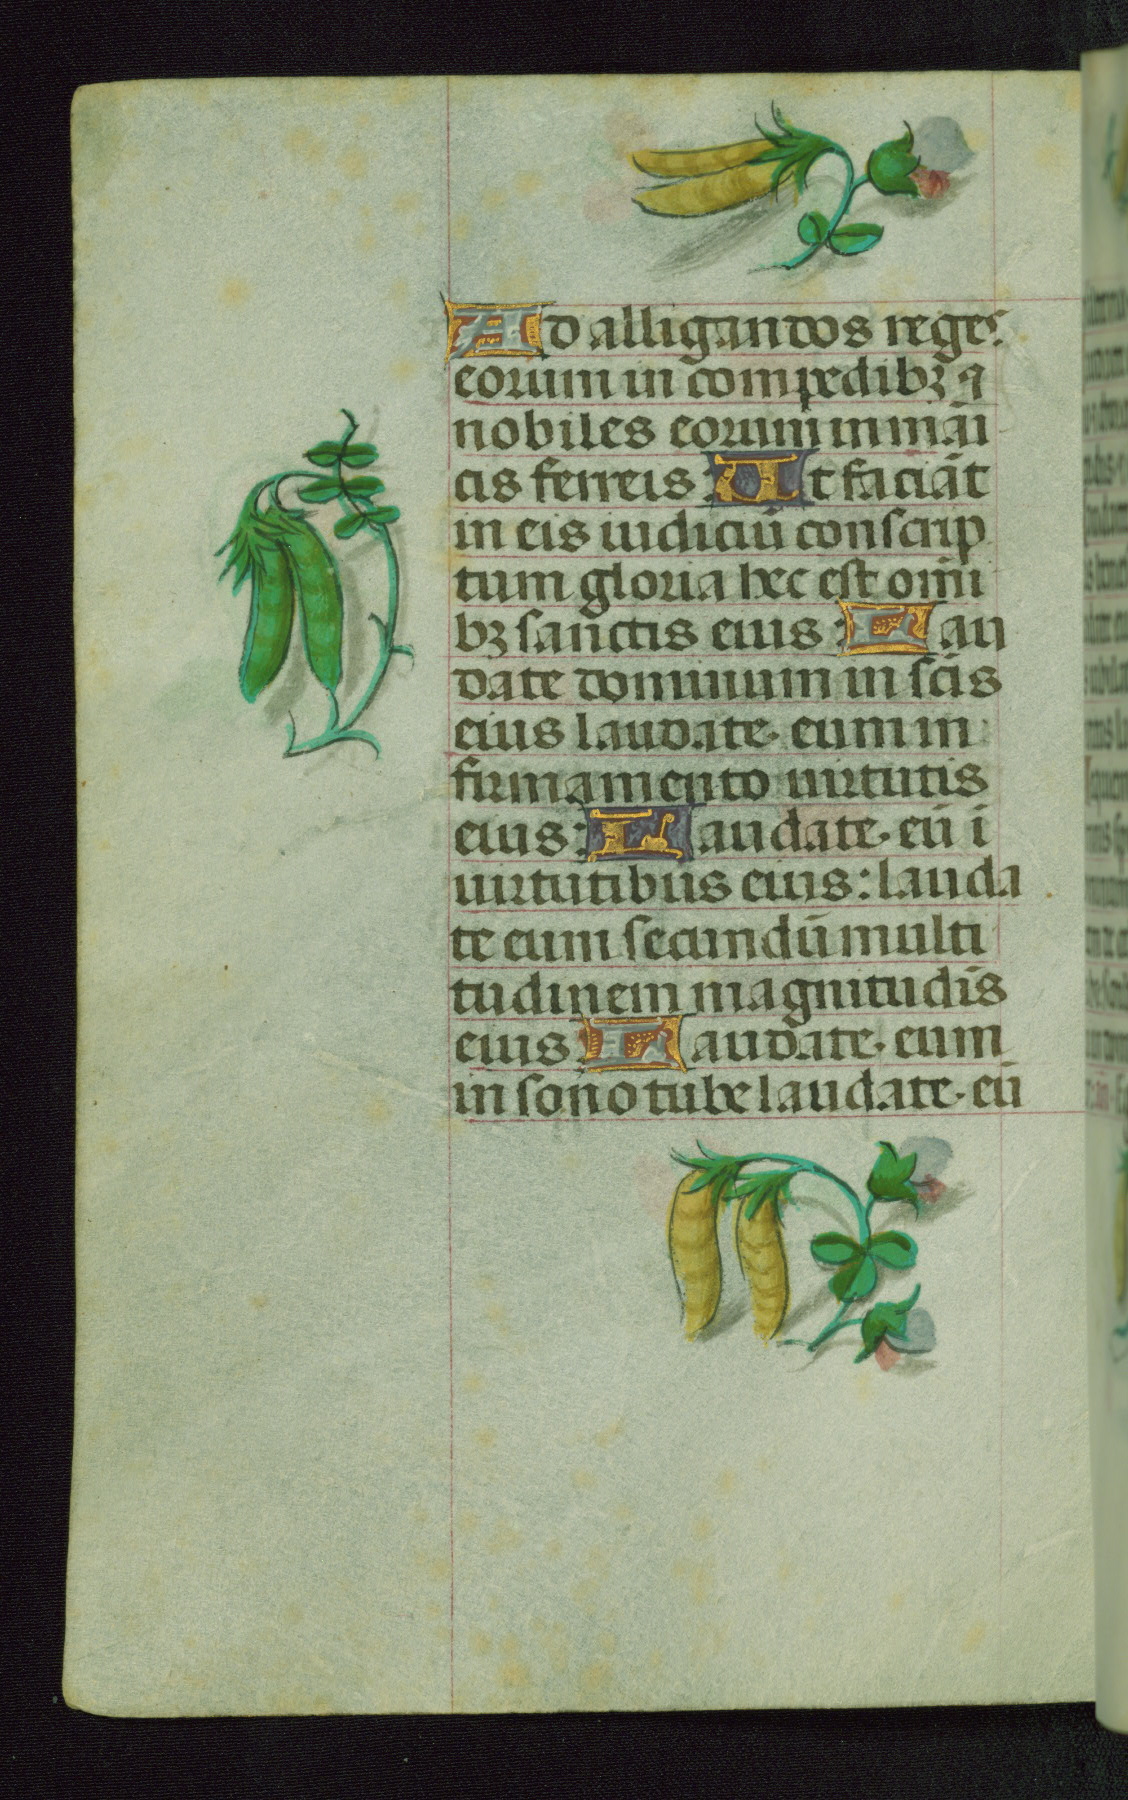 Ad alligandos reges
eorum in compedibꝫ ⁊
nobiles eorum in māi
cis ferreis: Ut faciāt
in eis iudiciū conscrip
tum gloria hec est om̄i
bꝫ sanctis eius: Lau
date dominum in sc̄is
eius laudate eum in
firmamento uirtutis
eius: Laudate eū i
uirtutibus eius: lauda
te eum secundū multi
tudinem magnitudīs
eius: Laudate eum
in sono tube laudate eū